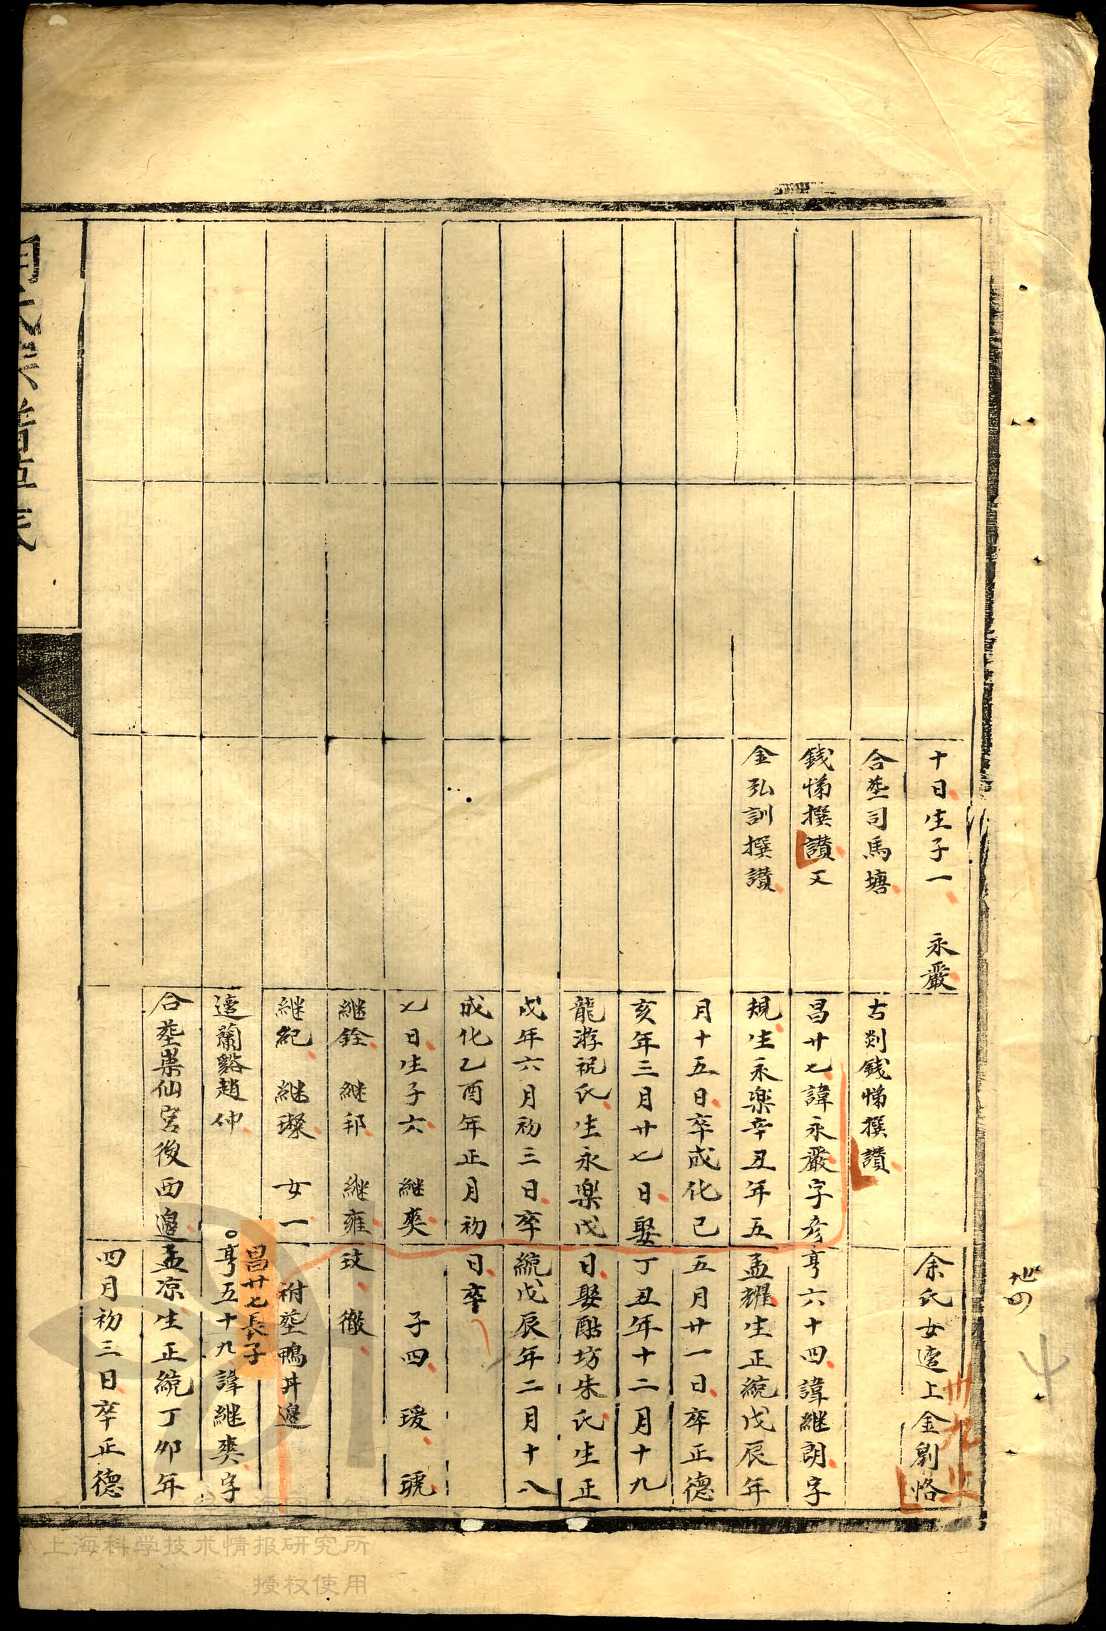 十日生子一　永嚴
合塟司馬塘
錢悌撰讃又
金弘訓撰讃
古剡錢悌撰讃
昌廿七諱永嚴字彥
規生永樂辛丑年五
月十五日卒成化己
亥年三月廿七日娶
龍游祝氏生永樂戊
戌年六月初三日卒
成化乙酉年正月初
七日生子六　継奭
継銓　継邦　継雍
継紀　継璨　女一
適蘭谿趙仲
合塟崇仙宮後西邊
余氏女適上金劉恪
亨六十四諱継朗字
孟耀生正統戊辰年
五月廿一日卒正德
丁丑年十二月十九
日娶酤坊朱氏生正
統戊辰年二月十八
日卒
子四　瑗　琥
玟　徹
祔塟鴨井邊
昌廿七長子
亨五十九諱継奭字
孟凉生正統丁卯年
四月初三日卒正德
卅九上
上海科学技术情报研究所
授权使用